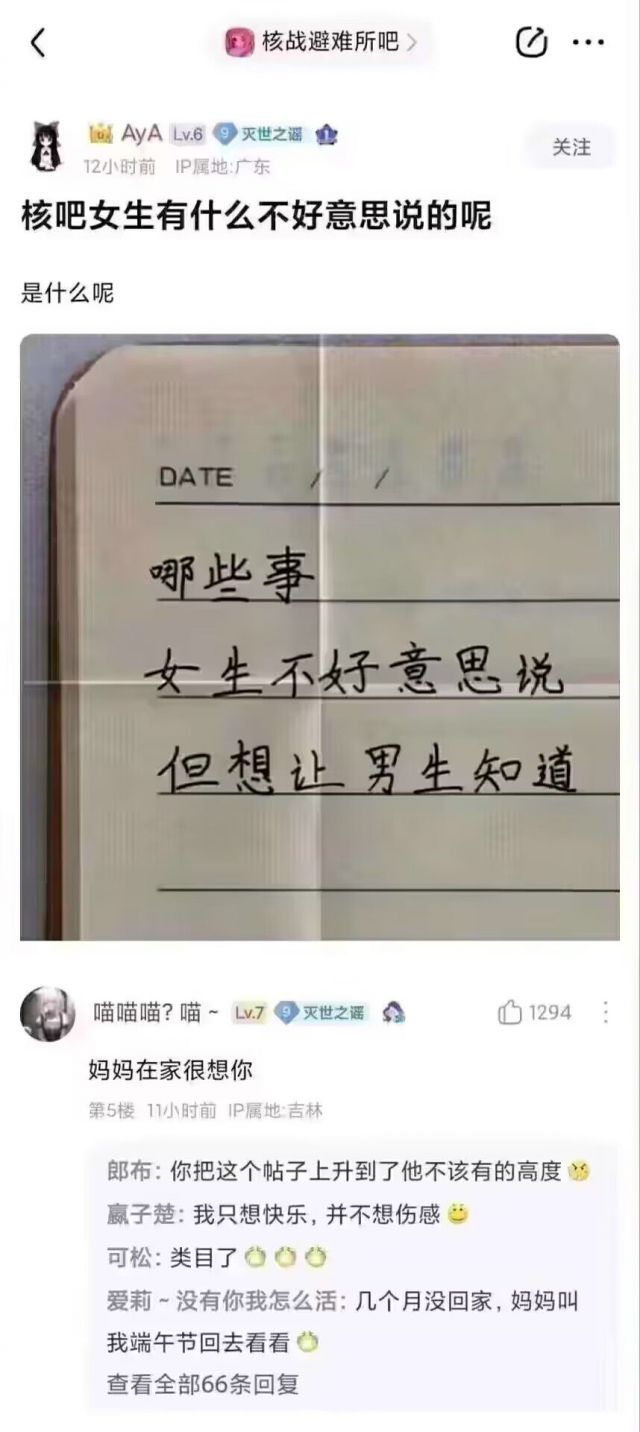 核战避难所吧
AyA Lv.6 9 灭世之谣
12小时前 IP属地:广东
关注
核吧女生有什么不好意思说的呢
是什么呢
DATE / /
哪些事
女生不好意思说
但想让男生知道
喵喵喵?喵~ Lv.7 9 灭世之谣
1294
妈妈在家很想你
第5楼 11小时前 IP属地:吉林
郎布: 你把这个帖子上升到了他不该有的高度
嬴子楚: 我只想快乐, 并不想伤感
可松: 类目了
爱莉~没有你我怎么活: 几个月没回家, 妈妈叫
我端午节回去看看
查看全部66条回复